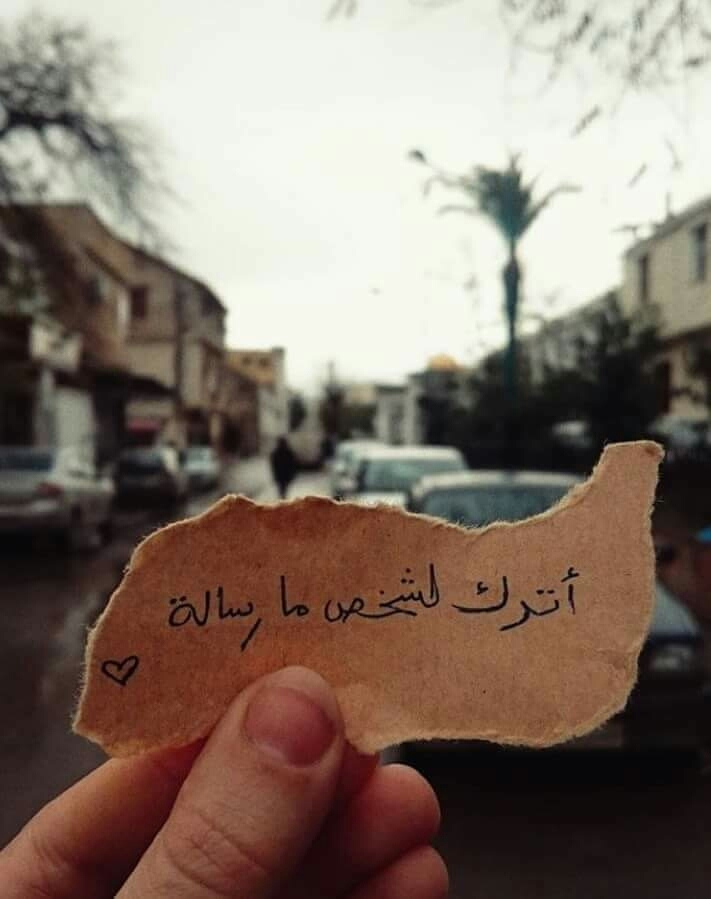 أترك لشخص ما رسالة